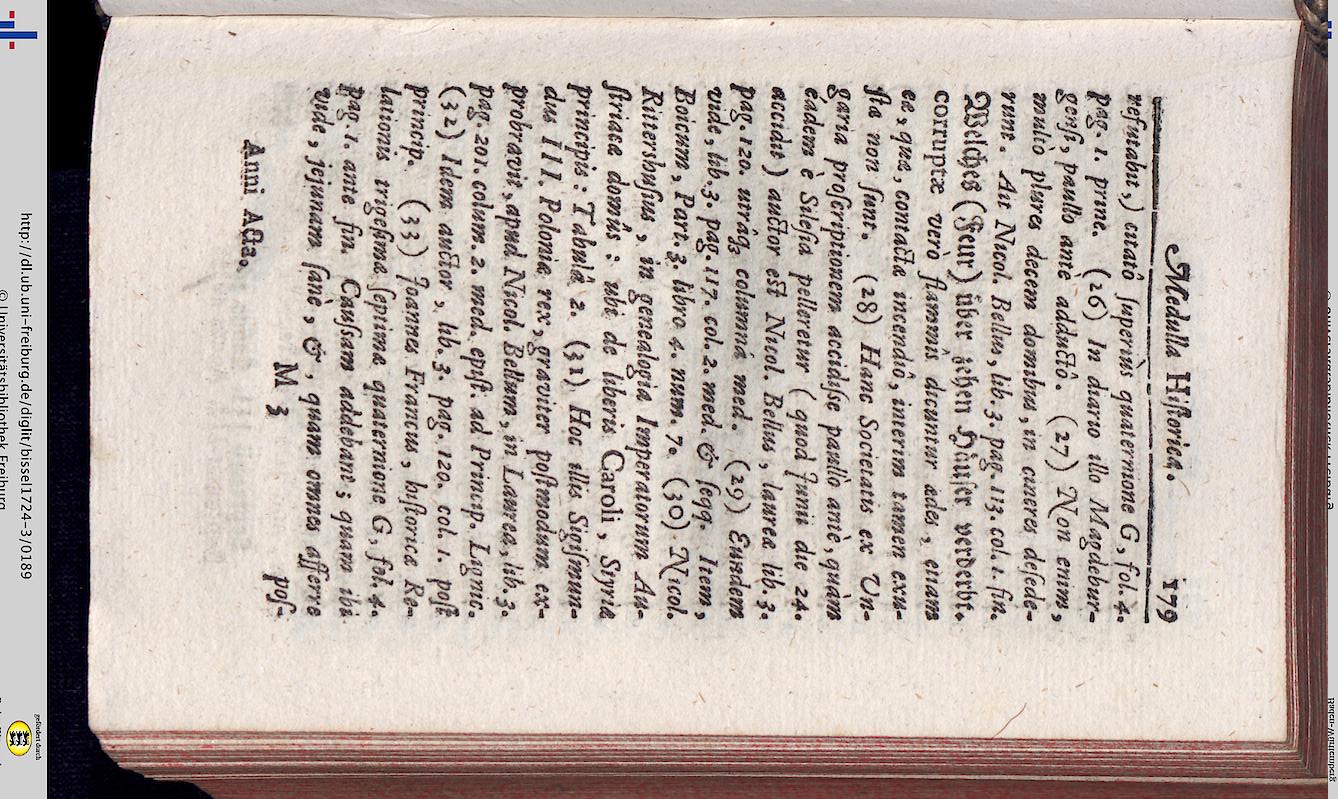 Medulla Historica. 179
refutabit,) citatô superiùs quaternione G, fol. 4.
pag. 1. princ. (26) In diario illo Magdebur-
gensi, paullo antè adductô. (27) Non enim,
multò plures decem domibus, in cineres desede-
runt. Ait Nicol. Bellus, lib. 3. pag. 113. col. 1. fin.
Welches (Feur) über zehen Häuser verderbt.
corruptæ verò flammis dicuntur ædes, etiam
eæ, quæ, contactæ incendiô, interim tamen exu-
stæ non sunt. (28) Hanc Societatis ex Un-
garia proscriptionem accidisse paullò antè, quàm
eadem è Silesia pelleretur (quod Junii die 24.
accidit) auctor est Nicol. Bellus, laurea lib. 3.
pag. 120. utrâq3 columnâ med. (29) Eundem
vide, lib. 3. pag. 117. col. 2. med. & seqq. Item,
Boicum, Part. 3. libro 4. num. 7. (30) Nicol.
Rittershusius, in genealogia Imperatorum Au-
striacæ domûs: ubi de liberis Caroli, Styriæ
principis: Tabulâ 2. (31) Hoc illis Sigismun-
dus III. Poloniæ rex, graviter postmodum ex-
probravit, apud Nicol. Bellum, in Laurea, lib. 3.
pag. 201. colum. 2. med. epist. ad Princip. Lignic.
(32) Idem auctor, lib. 3. pag. 120. col. 1. post
princip. (33) Joannes Francus, historicæ Re-
lationis trigesimæ septimæ quaternione G, fol. 4.
pag. 1. ante fin. Caussam addebant; quam ibi
vide, jejunam sanè, &, quam omnes afferre
M 3 pos-
Anni Acta.
http://dl.ub.uni-freiburg.de/diglit/bissel1724-3/0189
© Universitätsbibliothek Freiburg
gefördert durch